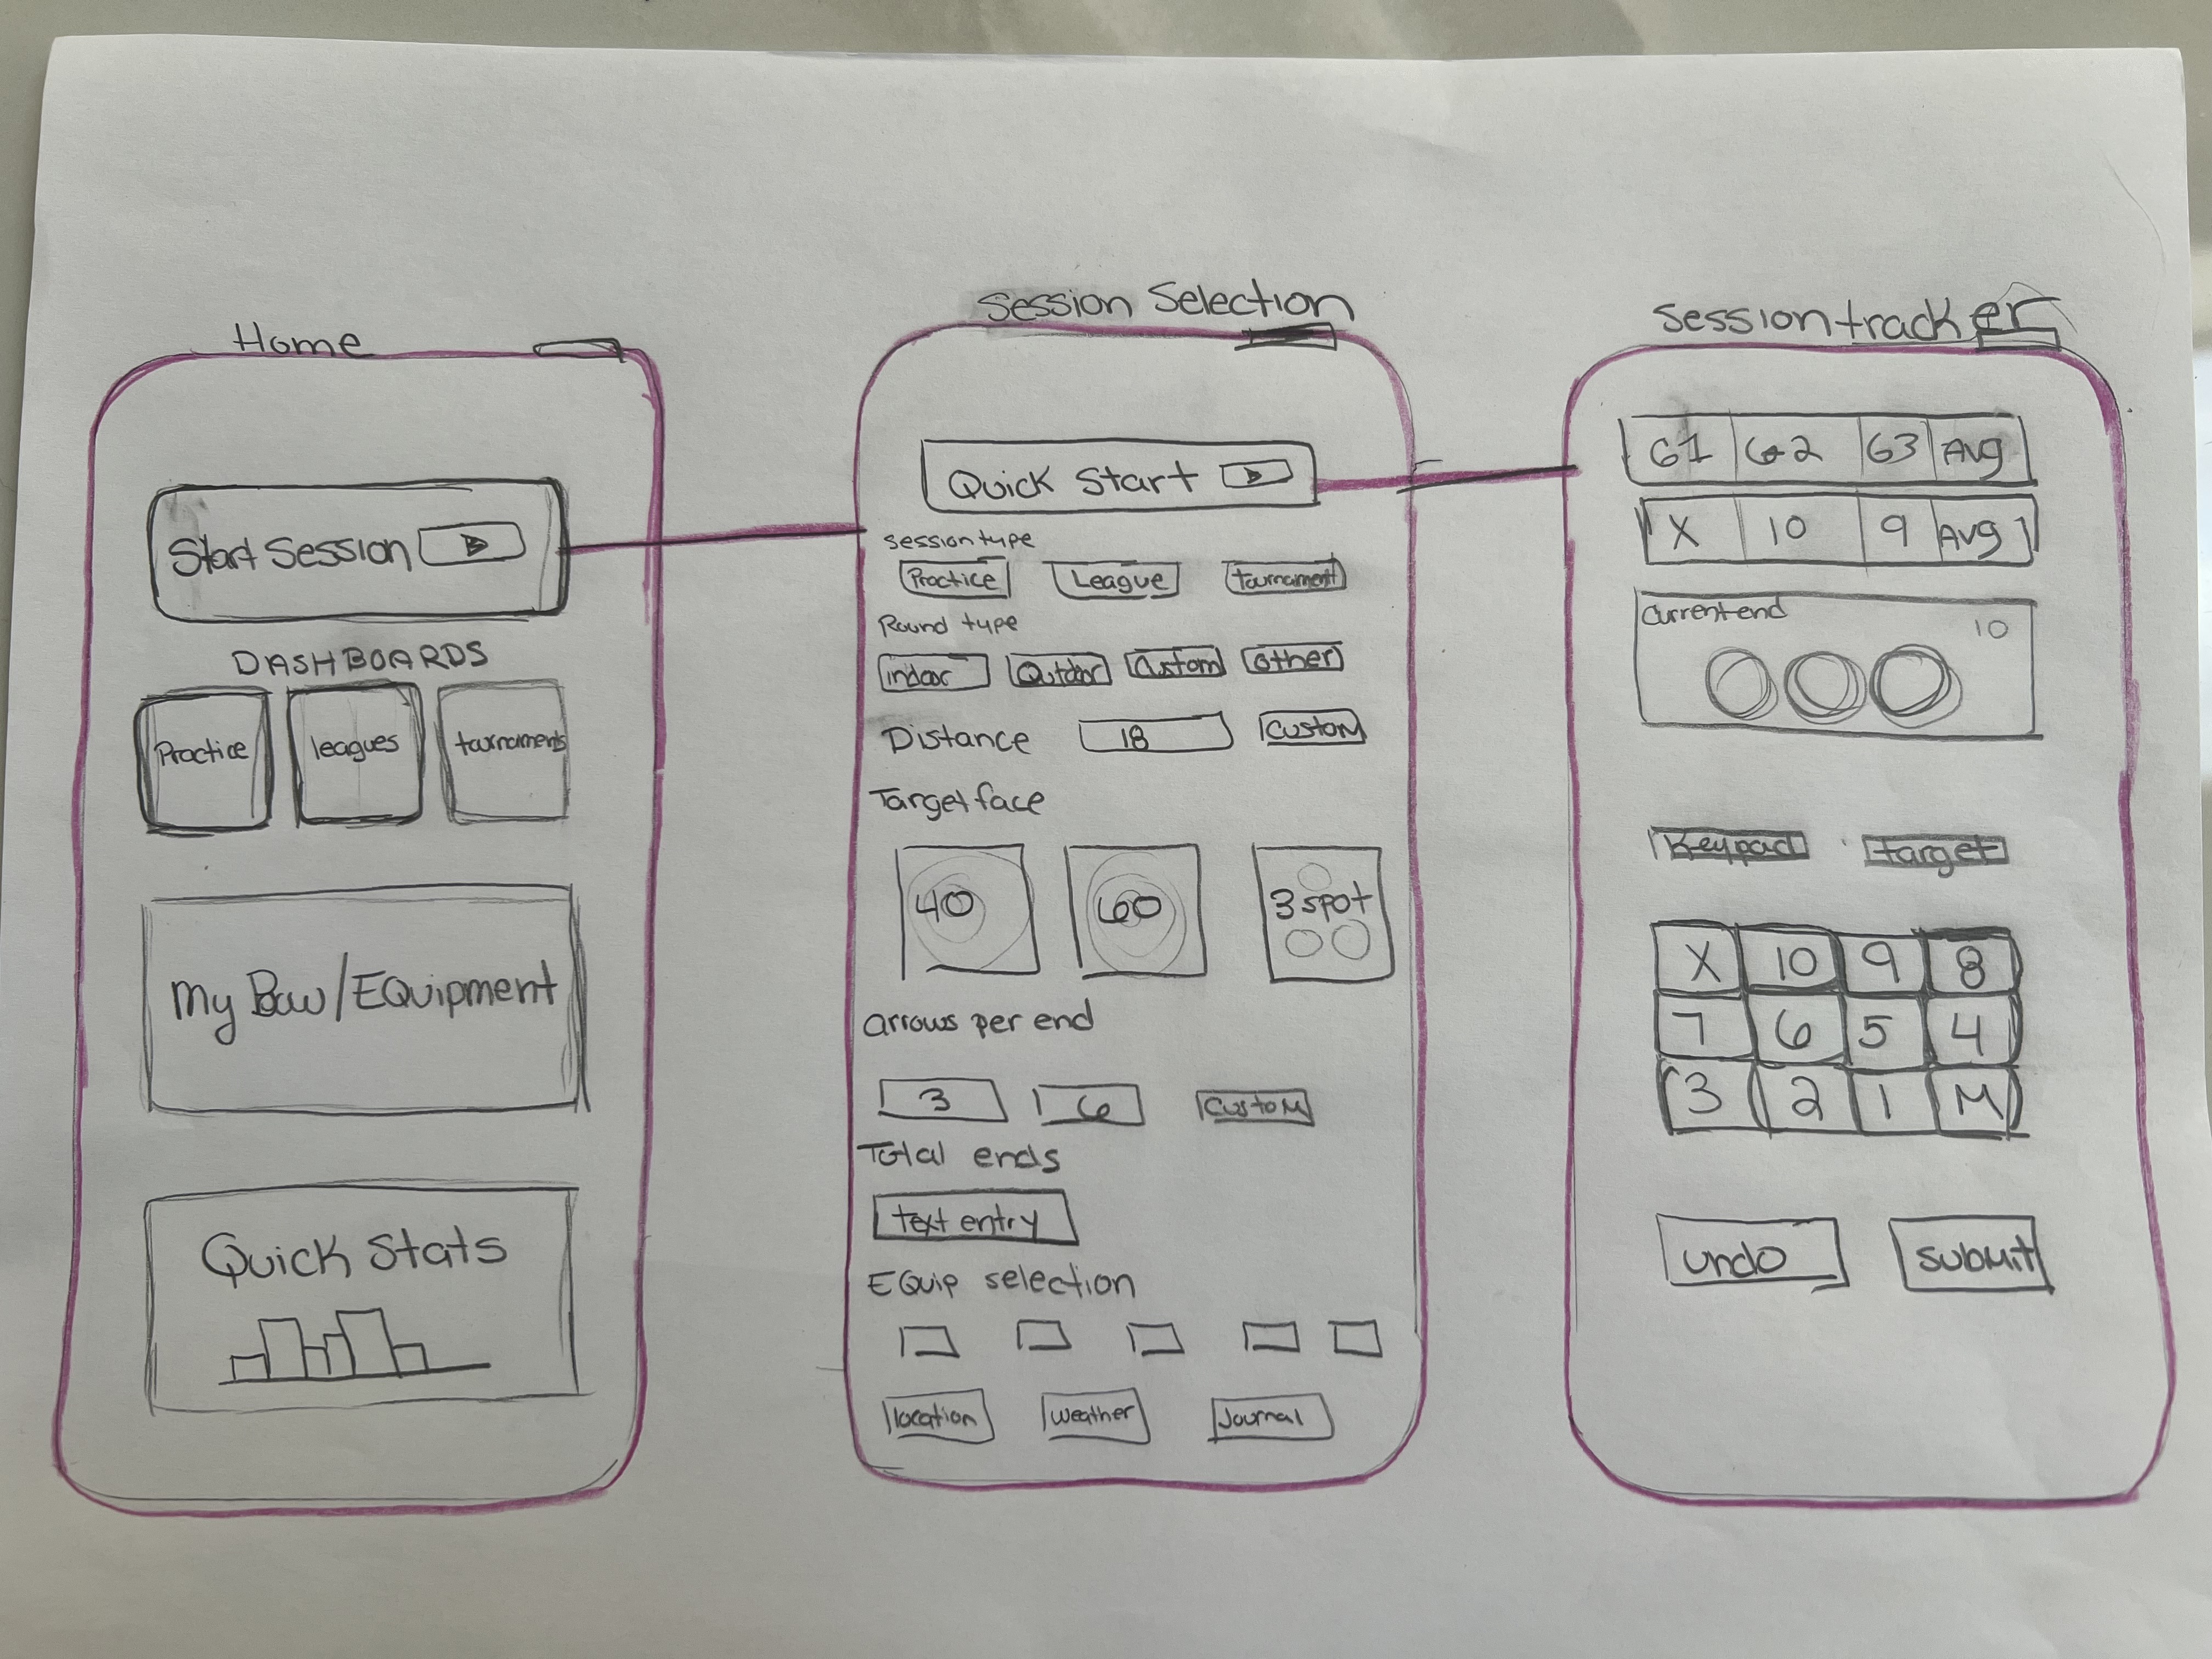 Home
Start Session
DASHBOARDS
Practice leagues tournaments
My Bow/EQuipment
Quick Stats
Session Selection
Quick Start
Session type
Practice League tournament
Round type
indoor Outdoor Custom other
Distance 18 Custom
Target face
40 60 3 spot
arrows per end
3 6 Custom
Total ends
text entry
EQuip selection
location weather Journal
Session tracker
G1 G2 G3 Avg
X 10 9 Avg
Current end
10
Keypad target
X 10 9 8
7 6 5 4
3 2 1 M
undo submit